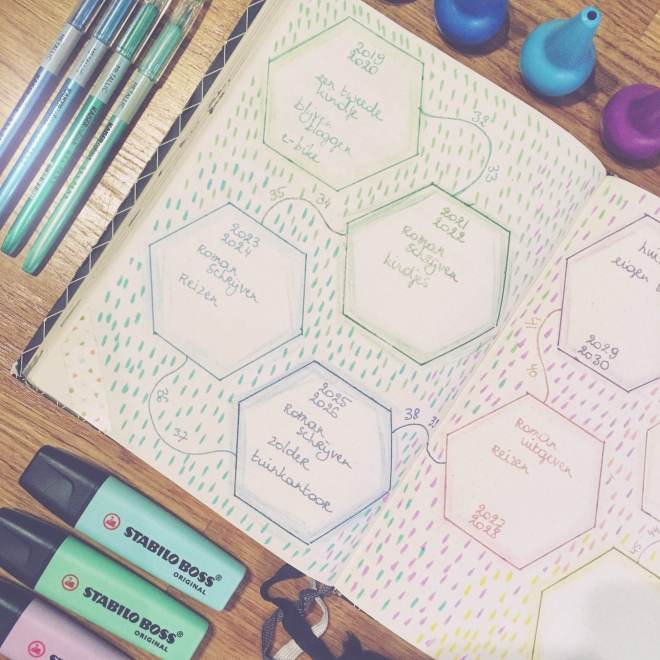 2019
2020
een tweede
kindje
blijven
bloggen
e-bike
32
33
2021
2022
Roman
schrijven
kindjes
34
35
2023
2024
Roman
schrijven
Reizen
36
37
2025
2026
Roman
schrijven
zolder
tuinkantoor
38
39
Roman
uitgeven
Reizen
2027
2028
40
41
eigen
2029
2030
44
45
STABILO BOSS
ORIGINAL
STABILO BOSS
ORIGINAL
STABILO
METALLIC
METALLIC
METALLIC
METALLIC